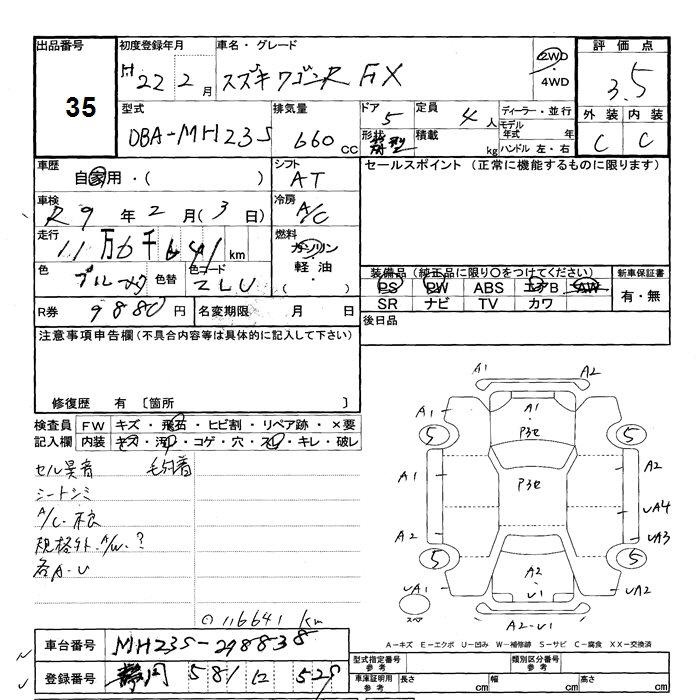 出品番号
35
初度登録年月
H22年2月
車名・グレード
スズキ ワゴンR FX
2WD
・
4WD
評価点
3.5
外装 内装
C C
型式
DBA-MH23S
排気量
660 CC
ドア
5
形状
定員
4人
積載
kg
ディーラー・並行
モデル
年式 年
ハンドル 左・右
車歴
自家用・( )
シフト
AT
セールスポイント (正常に機能するものに限ります)
車検
R9年2月(3日)
冷房
A/C
走行
11万6千641km
燃料
ガソリン
軽油
( )
色
色替
色コード
ZJU
装備品 (純正品に限り○をつけてください)
PS PW ABS エアB AW
SR ナビ TV カワ
新車保証書
有・無
R券
9880円
名変期限 月 日
後日品
注意事項申告欄 (不具合内容等は具体的に記入して下さい)
修復歴 有 〔箇所 〕
検査員
記入欄
FW キズ・飛石・ヒビ割・リペア跡・×要
内装 キズ・汚レ・コゲ・穴・スレ・キレ・破レ
セル異音
シートシミ
A/C.不良
規格外.A/W.?
各A.U
⊙116641km
A1 A2
A1 A1
P3セ
5 5
A1 P3セ A2
UA4
A2 UA3
5 5
UA1 A2 UA2
U1
スペア
A2-U1
A-キズ E-エクボ U-凹み W-補修跡 S-サビ C-腐食 XX-交換済
車台番号
MH23S-298838
登録番号
静岡 581 529
型式指定番号
参考
類別区分番号
参考
車庫証明用
参考
長さ cm
幅 cm
高さ cm